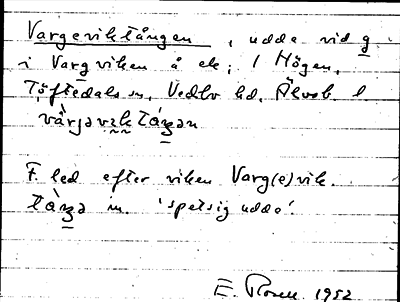 Vargeviktången, udde vid g
i Vargviken å ek; 1 Högen,
Töftedals sn, Vedbo hd, Älvsb. l
vàrjəvektáŋən
F. led efter viken Varg(e)vik.
táŋə m. 'spetsig udde'.
E. Rosell 1952